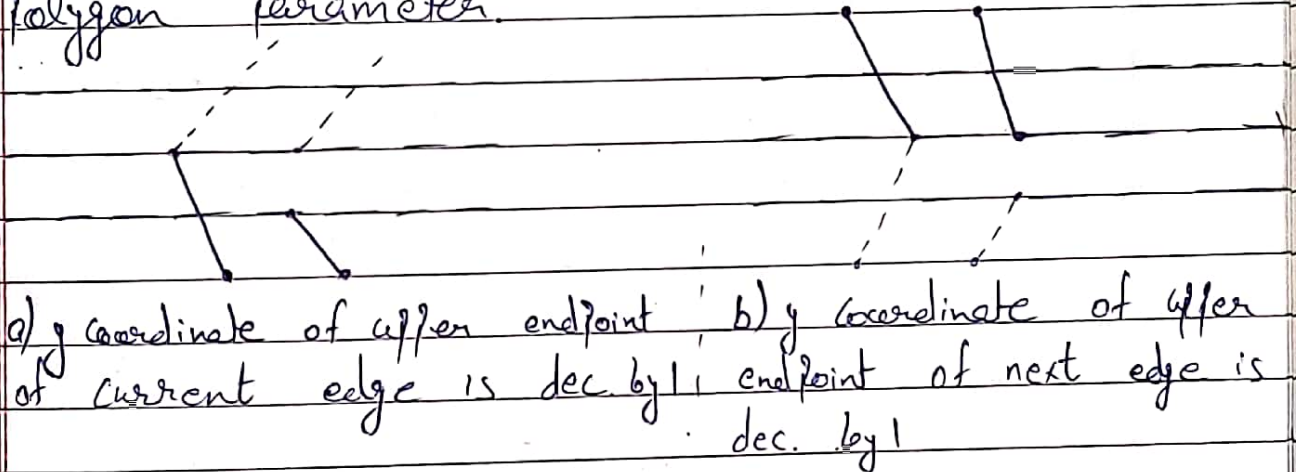 Polygon parameter.
a) y coordinate of upper endpoint
of current edge is dec. by 1
b) y coordinate of upper
endpoint of next edge is
dec. by 1